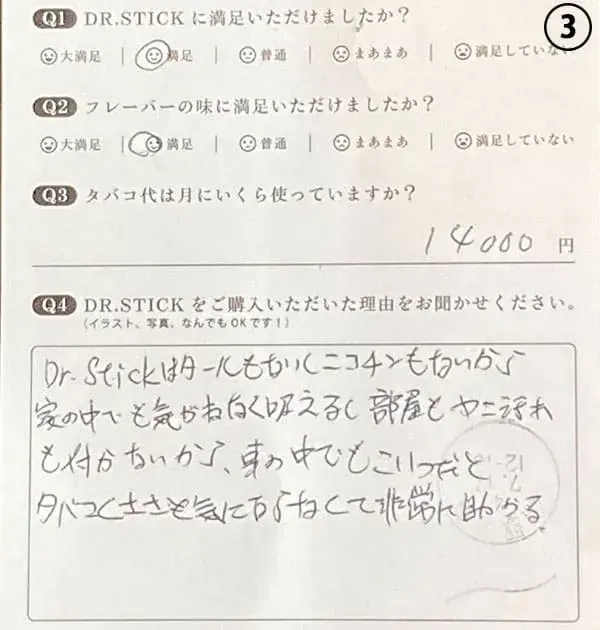 ③
Q1 DR.STICK に満足いただけましたか？
大満足 | 満足 | 普通 | まあまあ | 満足していない
Q2 フレーバーの味に満足いただけましたか？
大満足 | 満足 | 普通 | まあまあ | 満足していない
Q3 タバコ代は月にいくら使っていますか？
14000 円
Q4 DR.STICK をご購入いただいた理由をお聞かせください。
(イラスト、写真、なんでもOKです！)
Dr.Stickはタールもないしニコチンもないから
家の中でも気がねなく吸えるし部屋もヤニ汚れ
も付かないから、車の中でもこいつだと
タバコくささも気にならなくて非常に助かる。